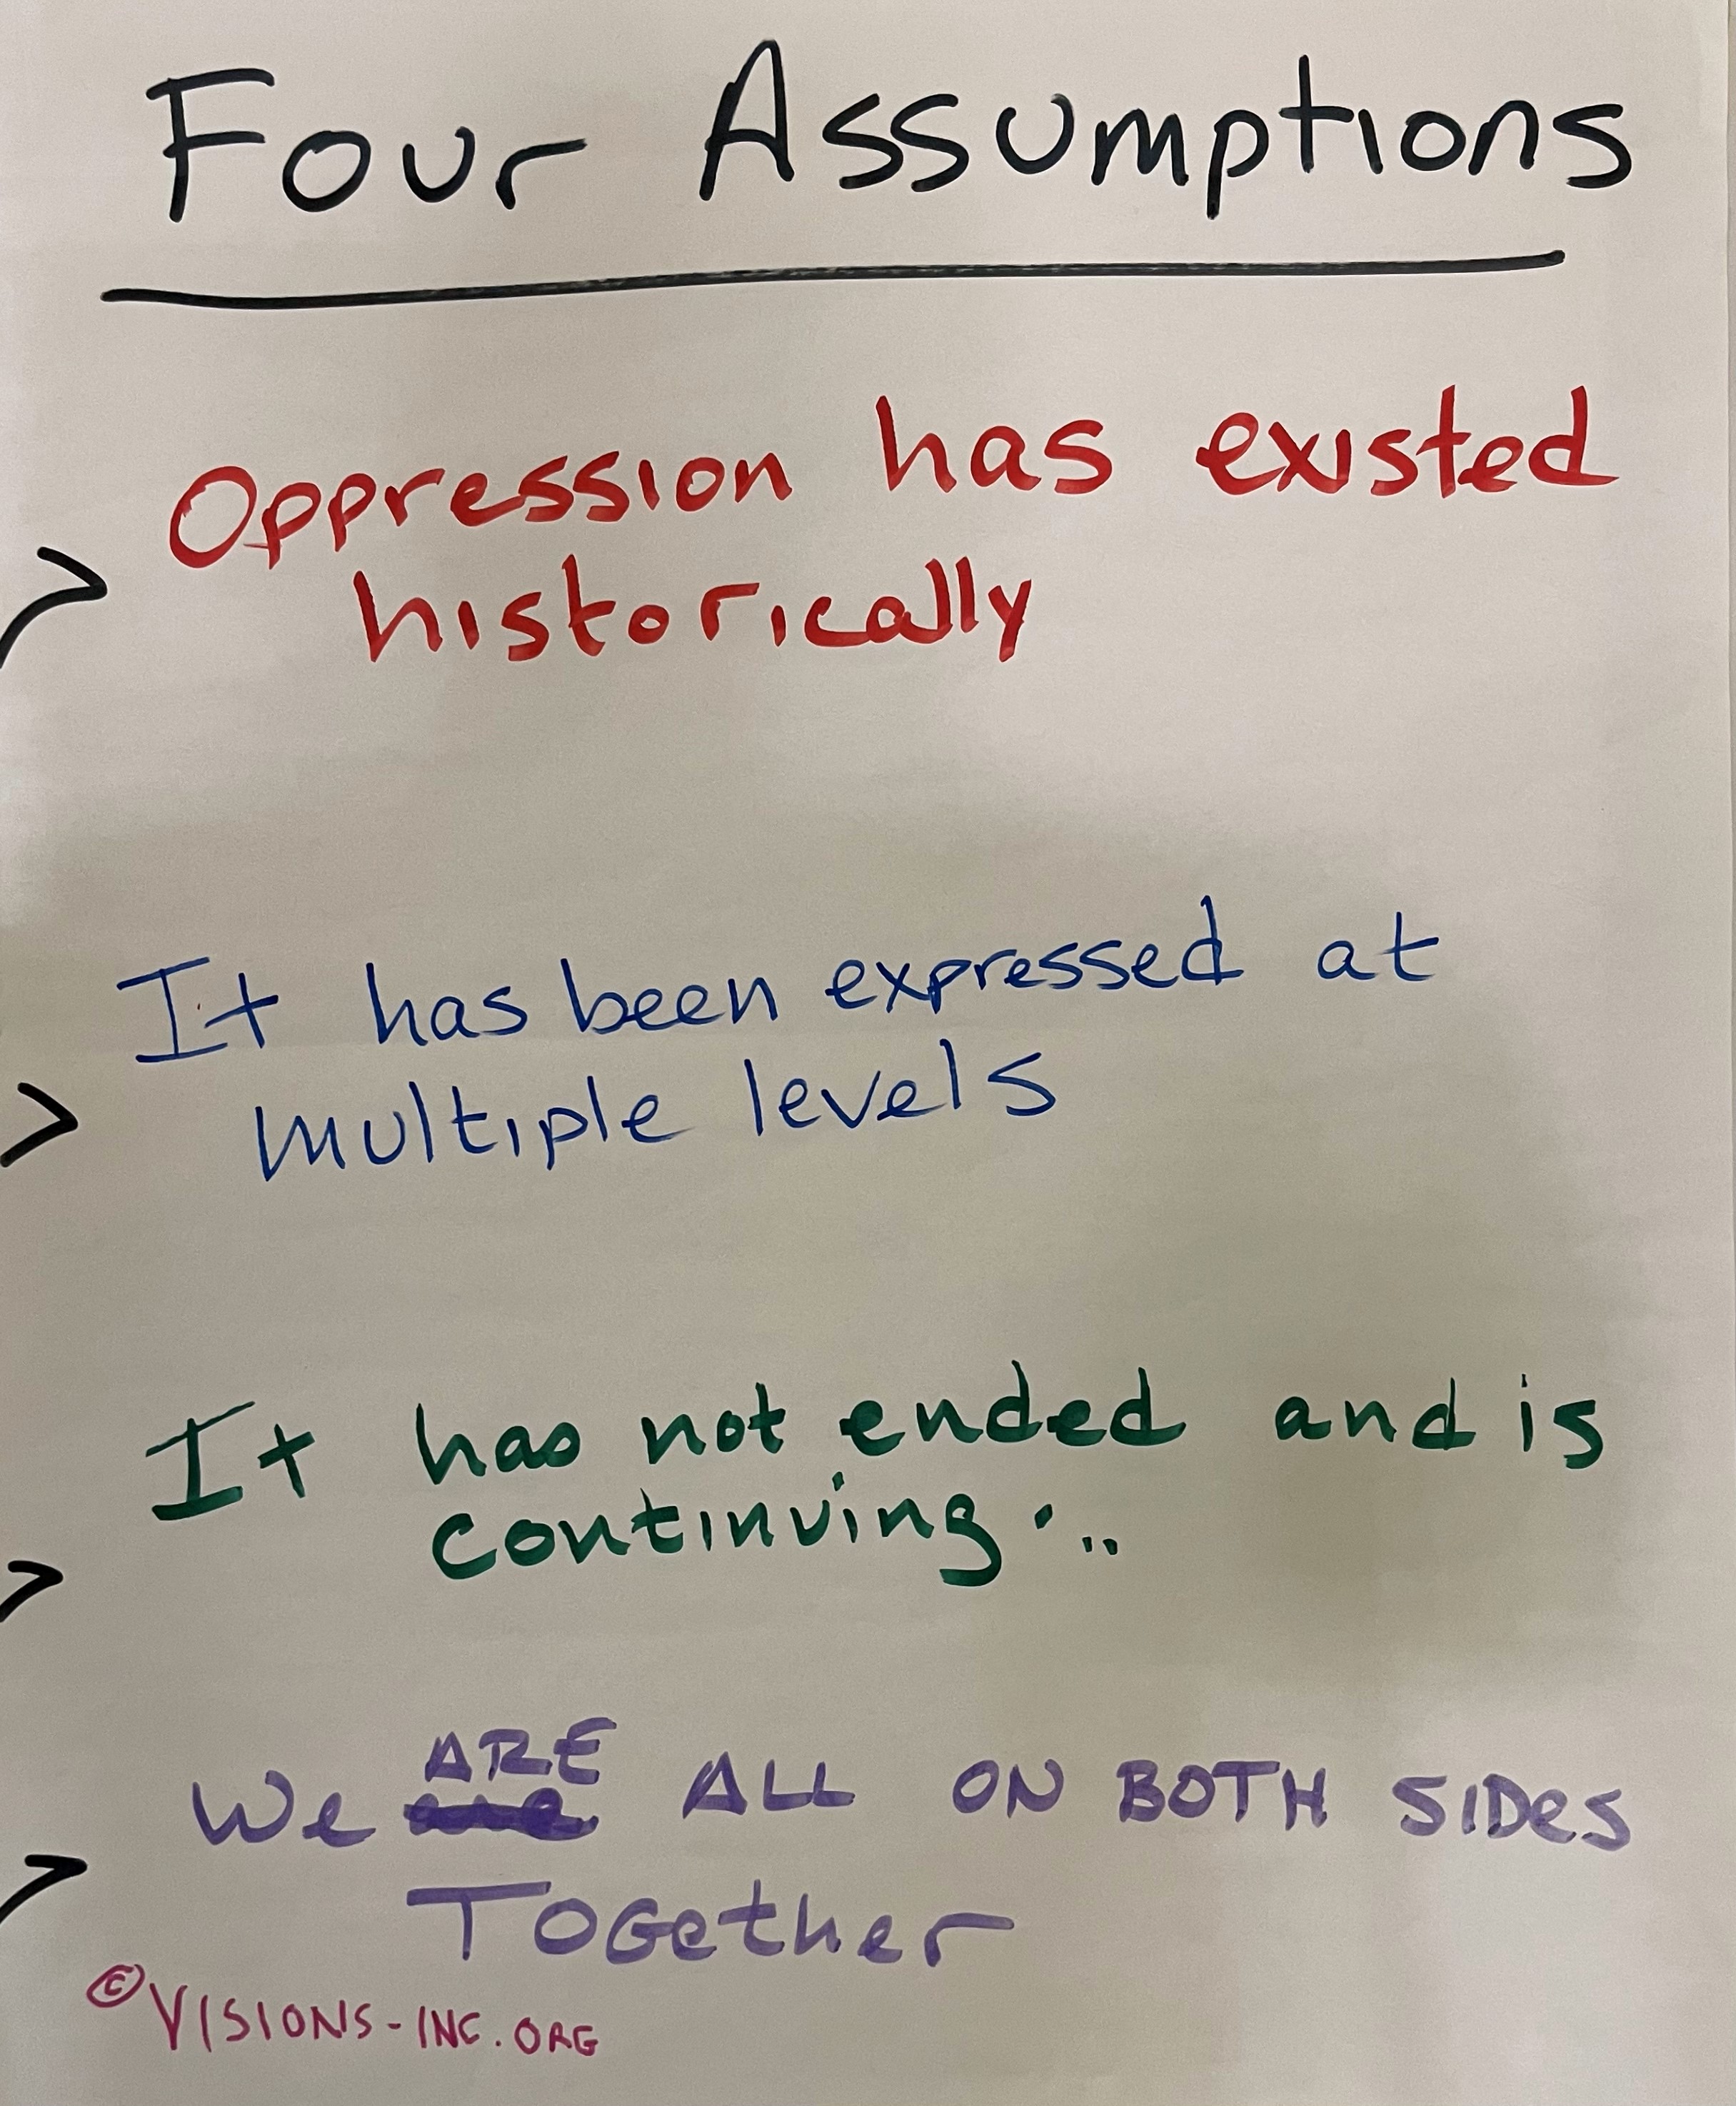 Four Assumptions
> Oppression has existed
historically
> It has been expressed at
multiple levels
> It has not ended and is
continuing...
> We ARE ALL ON BOTH SIDes
TOGether
©VISIONS-INC.ORG